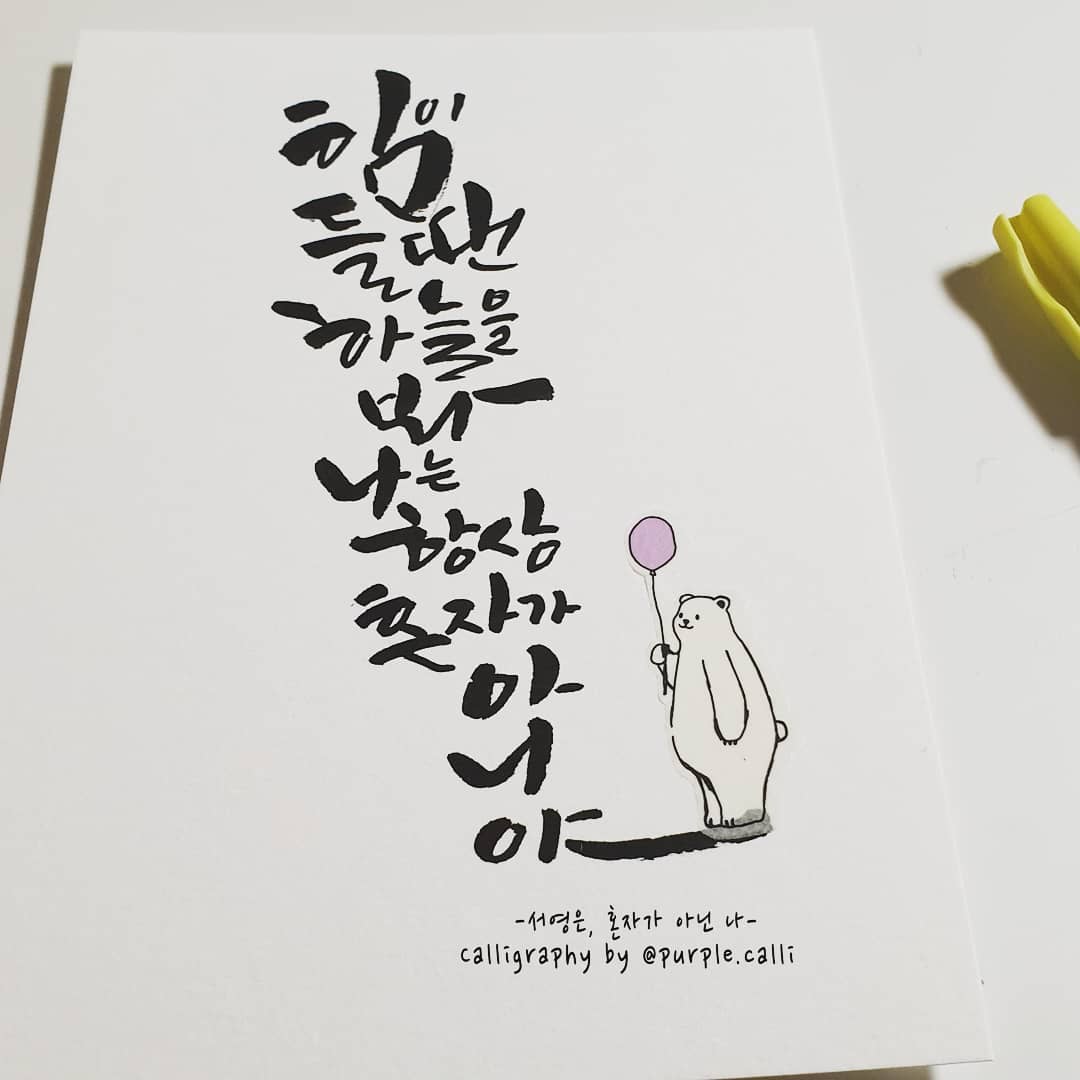 힘이
들땐
하늘을
봐
나는
항상
혼자가
아
니
야
-서영은, 혼자가 아닌 나-
calligraphy by @purple.calli